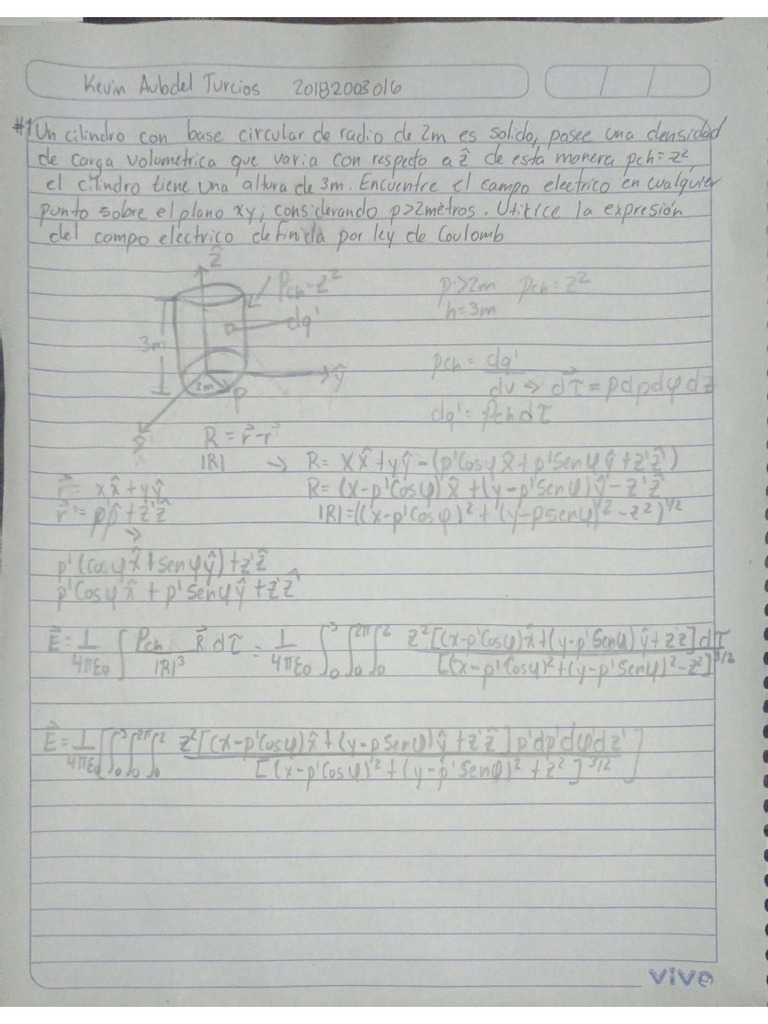 Kevin Aubdel Turcios 20182003016
#1 Un cilindro con base circular de radio de 2m es solido, posee una densidad
de carga volumetrica que varia con respecto a ẑ de esta manera ρch = z²,
el cilindro tiene una altura de 3m. Encuentre el campo electrico en cualquier
punto sobre el plano xy; considerando ρ>2metros. Utilice la expresión
del campo electrico definida por ley de Coulomb
ẑ
ρch=z²
ρ>2m ρch=z²
dq'
h=3m
3m
2m
ρ
ŷ
x̂
ρch = dq'/dv => dτ⃗ = ρdρdφdz
dq' = ρch dτ
R = r⃗-r⃗'
|R| → R= Xx̂+yŷ-(ρ'Cosφx̂+ρ'Senφŷ+z'ẑ)
r⃗= xx̂+yŷ
R= (x-ρ'Cosφ)x̂+(y-ρ'Senφ)ŷ-z'ẑ
r⃗'= ρρ̂+z'ẑ
|R|=((x-ρ'Cosφ)²+(y-ρSenφ)²-z²)^1/2
→
ρ'(Cosφx̂+Senφŷ)+z'ẑ
ρ'Cosφx̂+ρ'Senφŷ+z'ẑ
E⃗= 1/4πε0 ∫ ρch R⃗ dτ/|R|³ = 1/4πε0 ∫₀³∫₀^2π∫₀² z²[(x-ρ'Cosφ)x̂+(y-ρ'Senφ)ŷ+z'ẑ]dτ/[(x-ρ'Cosφ)²+(y-ρ'Senφ)²-z²]^3/2
E⃗= 1/4πε0 [∫₀³∫₀^2π∫₀² z²[(x-ρ'Cosφ)x̂+(y-ρSenφ)ŷ+z'ẑ]ρ'dρ'dφ'dz'/[(x-ρ'Cosφ)²+(y-ρ'Senφ)²+z²]^3/2]
vive